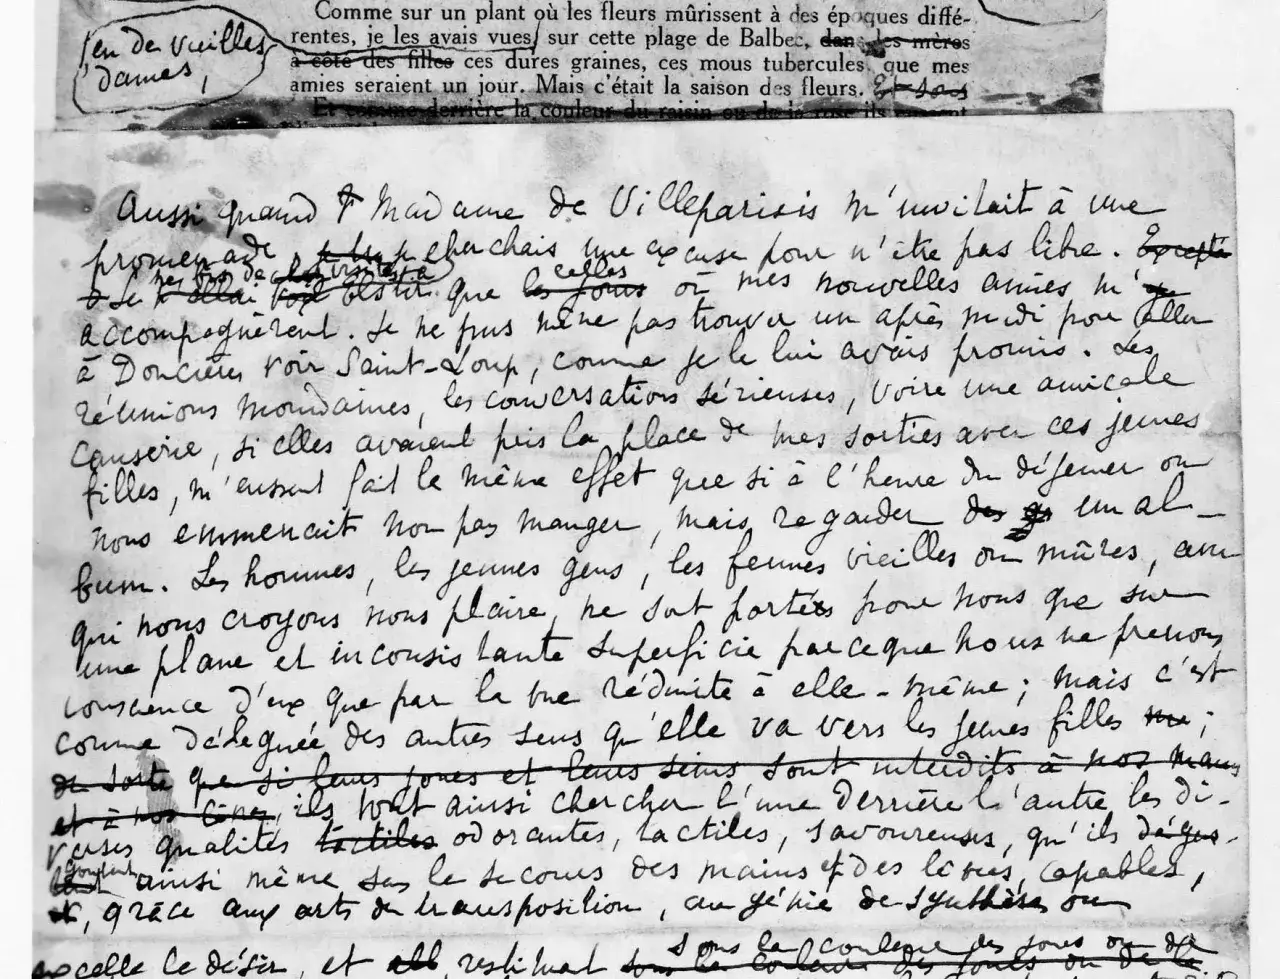 Comme sur un plant où les fleurs mûrissent à des époques diffé-
rentes, je les avais vues, sur cette plage de Balbec, dans les mères
en de vieilles
dames,
à côté des filles ces dures graines, ces mous tubercules, que mes
amies seraient un jour. Mais c'était la saison des fleurs. Et sous
Et comme derrière la couleur du raisin ou de la rose ils
Aussi quand Madame de Villeparisis m'invitait à une
promenade je cherchais une excuse pour n'être pas libre. Excepté
visites à
celles
Je Elstir que les jours où mes nouvelles amies m'
accompagnèrent. Je ne pus même pas trouver un après midi pour aller
à Doncières voir Saint-Loup, comme je le lui avais promis. Les
réunions mondaines, les conversations sérieuses, voire une amicale
causerie, si elles avaient pris la place de mes sorties avec ces jeunes
filles, m'eussent fait le même effet que si à l'heure du déjeuner on
nous emmenait non pas manger, mais regarder des un al-
bum. Les hommes, les jeunes gens, les femmes vieilles ou mûres, avec
qui nous croyons nous plaire, ne sont portés pour nous que sur
une plane et inconsistante superficie parce que nous ne prenons
conscience d'eux que par la vue réduite à elle-même; mais c'est
comme déléguée des autres sens qu'elle va vers les jeunes filles;
de sorte que si leurs joues et leurs seins sont interdits à nos mains
et à nos lèvres, ils vont ainsi chercher l'une derrière l'autre les di-
verses qualités tactiles odorantes, tactiles, savoureuses, qu'ils dégus-
goûtent
tent ainsi même sans le secours des mains et des lèvres, capables,
grâce aux arts de transposition, au génie de synthèse où
sous la couleur des joues ou de
excelle le désir, et restituent sous la couleur des joues ou de la